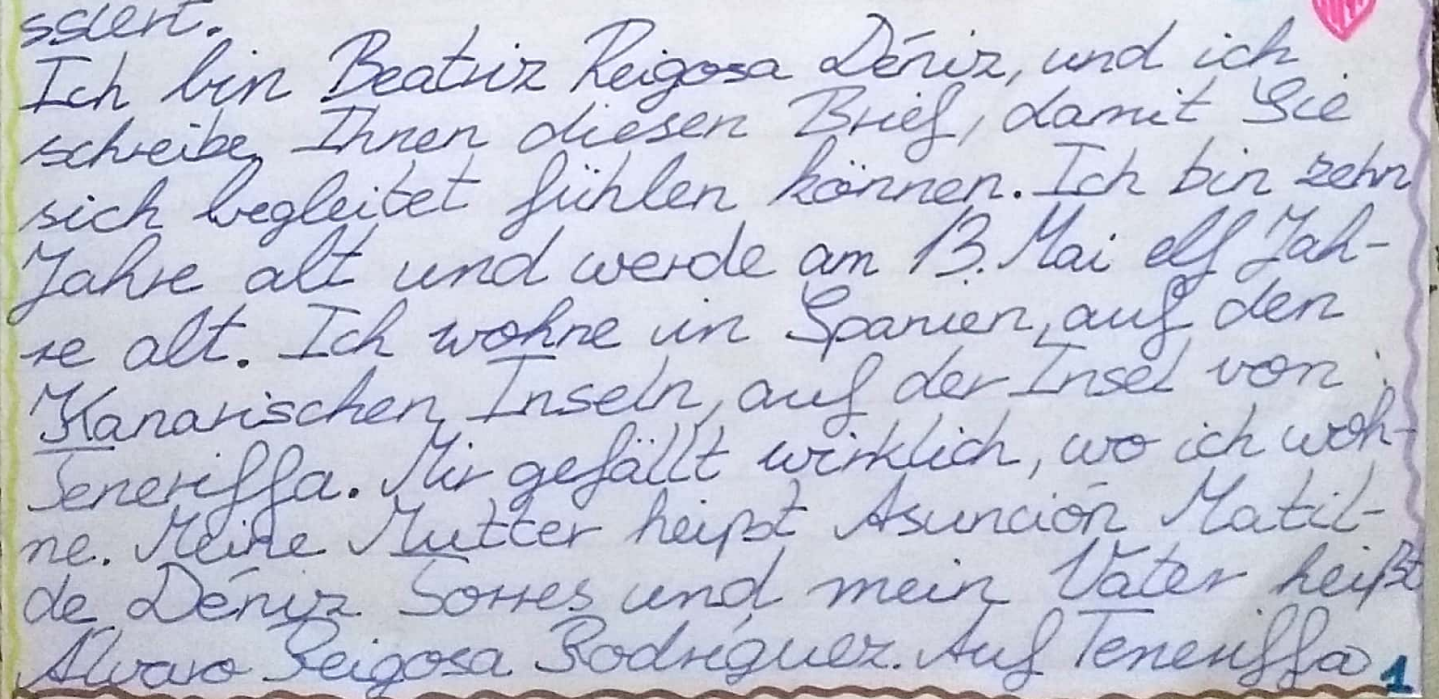 ssiert.
Ich bin Beatriz Reigosa Déniz, und ich
schreibe Ihnen diesen Brief, damit Sie
sich begleitet fühlen können. Ich bin zehn
Jahre alt und werde am 13. Mai elf Jah-
re alt. Ich wohne in Spanien, auf den
Kanarischen Inseln, auf der Insel von
Teneriffa. Mir gefällt wirklich, wo ich woh-
ne. Meine Mutter heißt Asunción Matil-
de Déniz Torres und mein Vater heißt
Álvaro Reigosa Rodríguez. Auf Teneriffa
1